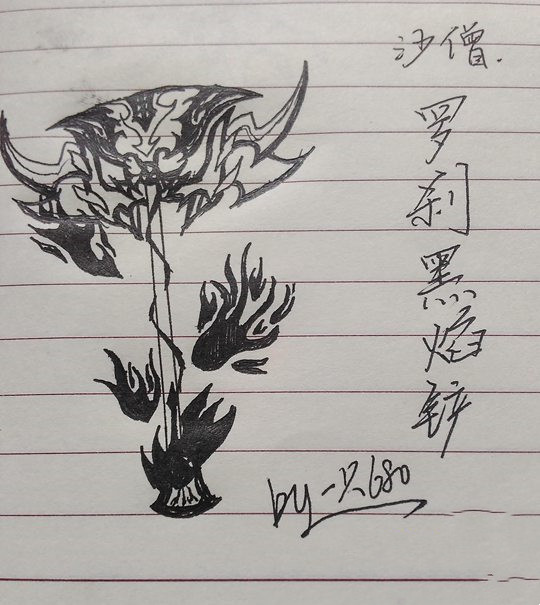 沙僧.
罗刹黑焰锌
by一只680